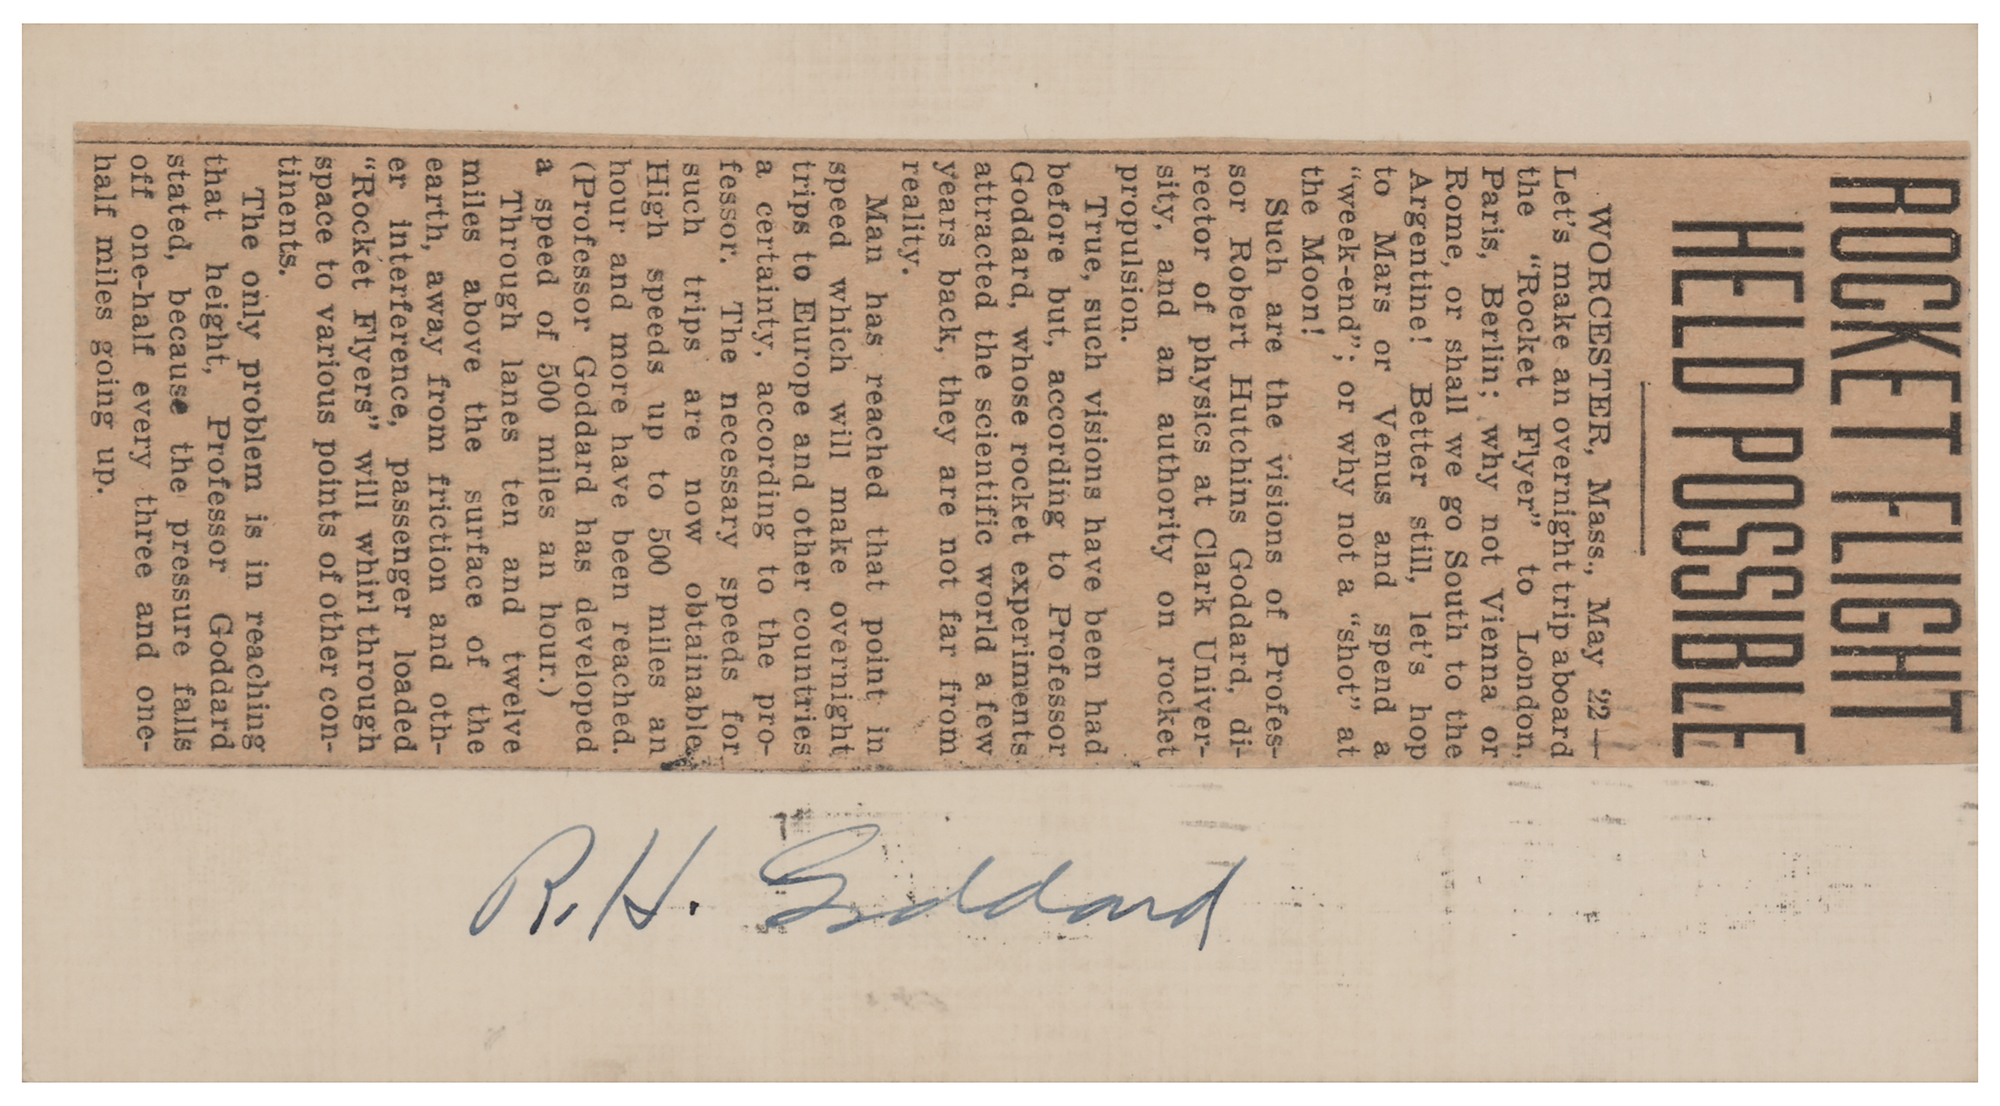 ROCKET FLIGHT
HELD POSSIBLE
WORCESTER, Mass., May 22—
Let's make an overnight trip aboard
the "Rocket Flyer" to London,
Paris, Berlin; why not Vienna or
Rome, or shall we go South to the
Argentine! Better still, let's hop
to Mars or Venus and spend a
"week-end"; or why not a "shot" at
the Moon!
Such are the visions of Profes-
sor Robert Hutchins Goddard, di-
rector of physics at Clark Univer-
sity, and an authority on rocket
propulsion.
True, such visions have been had
before but, according to Professor
Goddard, whose rocket experiments
attracted the scientific world a few
years back, they are not far from
reality.
Man has reached that point in
speed which will make overnight
trips to Europe and other countries
a certainty, according to the pro-
fessor. The necessary speeds for
such trips are now obtainable.
High speeds up to 500 miles an
hour and more have been reached.
(Professor Goddard has developed
a speed of 500 miles an hour.)
Through lanes ten and twelve
miles above the surface of the
earth, away from friction and oth-
er interference, passenger loaded
"Rocket Flyers" will whirl through
space to various points of other con-
tinents.
The only problem is in reaching
that height, Professor Goddard
stated, because the pressure falls
off one-half every three and one-
half miles going up.
R. H. Goddard